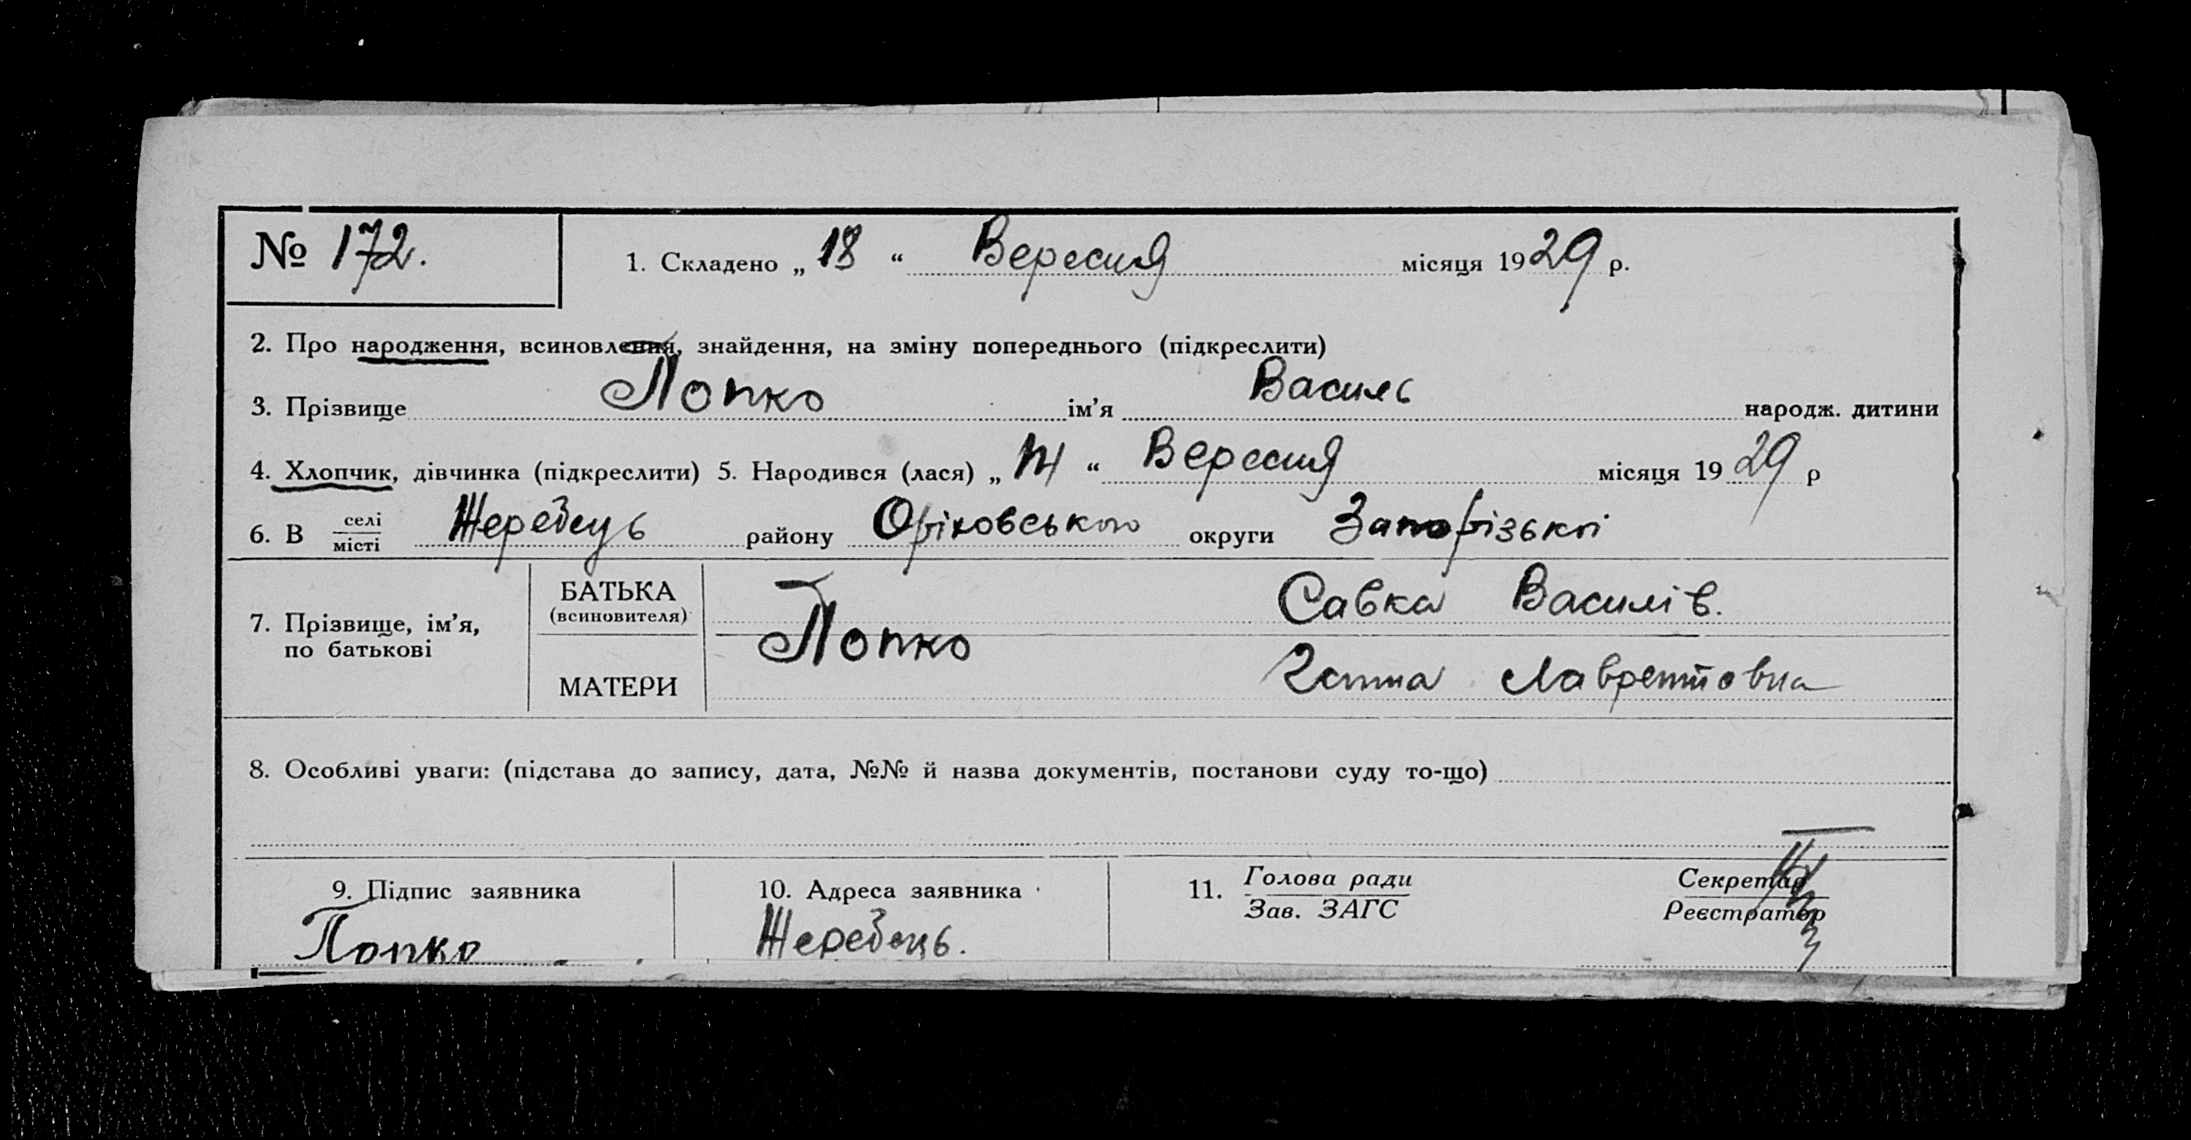 № 172. 1. Складено „ 18 “ Вересня місяця 1929 р.
2. Про народження, всиновлення, знайдення, на зміну попереднього (підкреслити)
3. Прізвище Попко ім’я Василь народж. дитини
4. Хлопчик, дівчинка (підкреслити) 5. Народився (лася) „ “ Вересня місяця 1929 р
6. В селі Жеребець району Оріховського округи Запорізької
місті
7. Прізвище, ім’я, по батькові
БАТЬКА (всиновителя) Попко Савка Василів.
МАТЕРИ Ганна Лаврентовна
8. Особливі уваги: (підстава до запису, дата, №№ й назва документів, постанови суду то-що)
9. Підпис заявника 10. Адреса заявника 11. Голова ради Секретар
Зав. ЗАГС Реєстратор
Попко Жеребець.